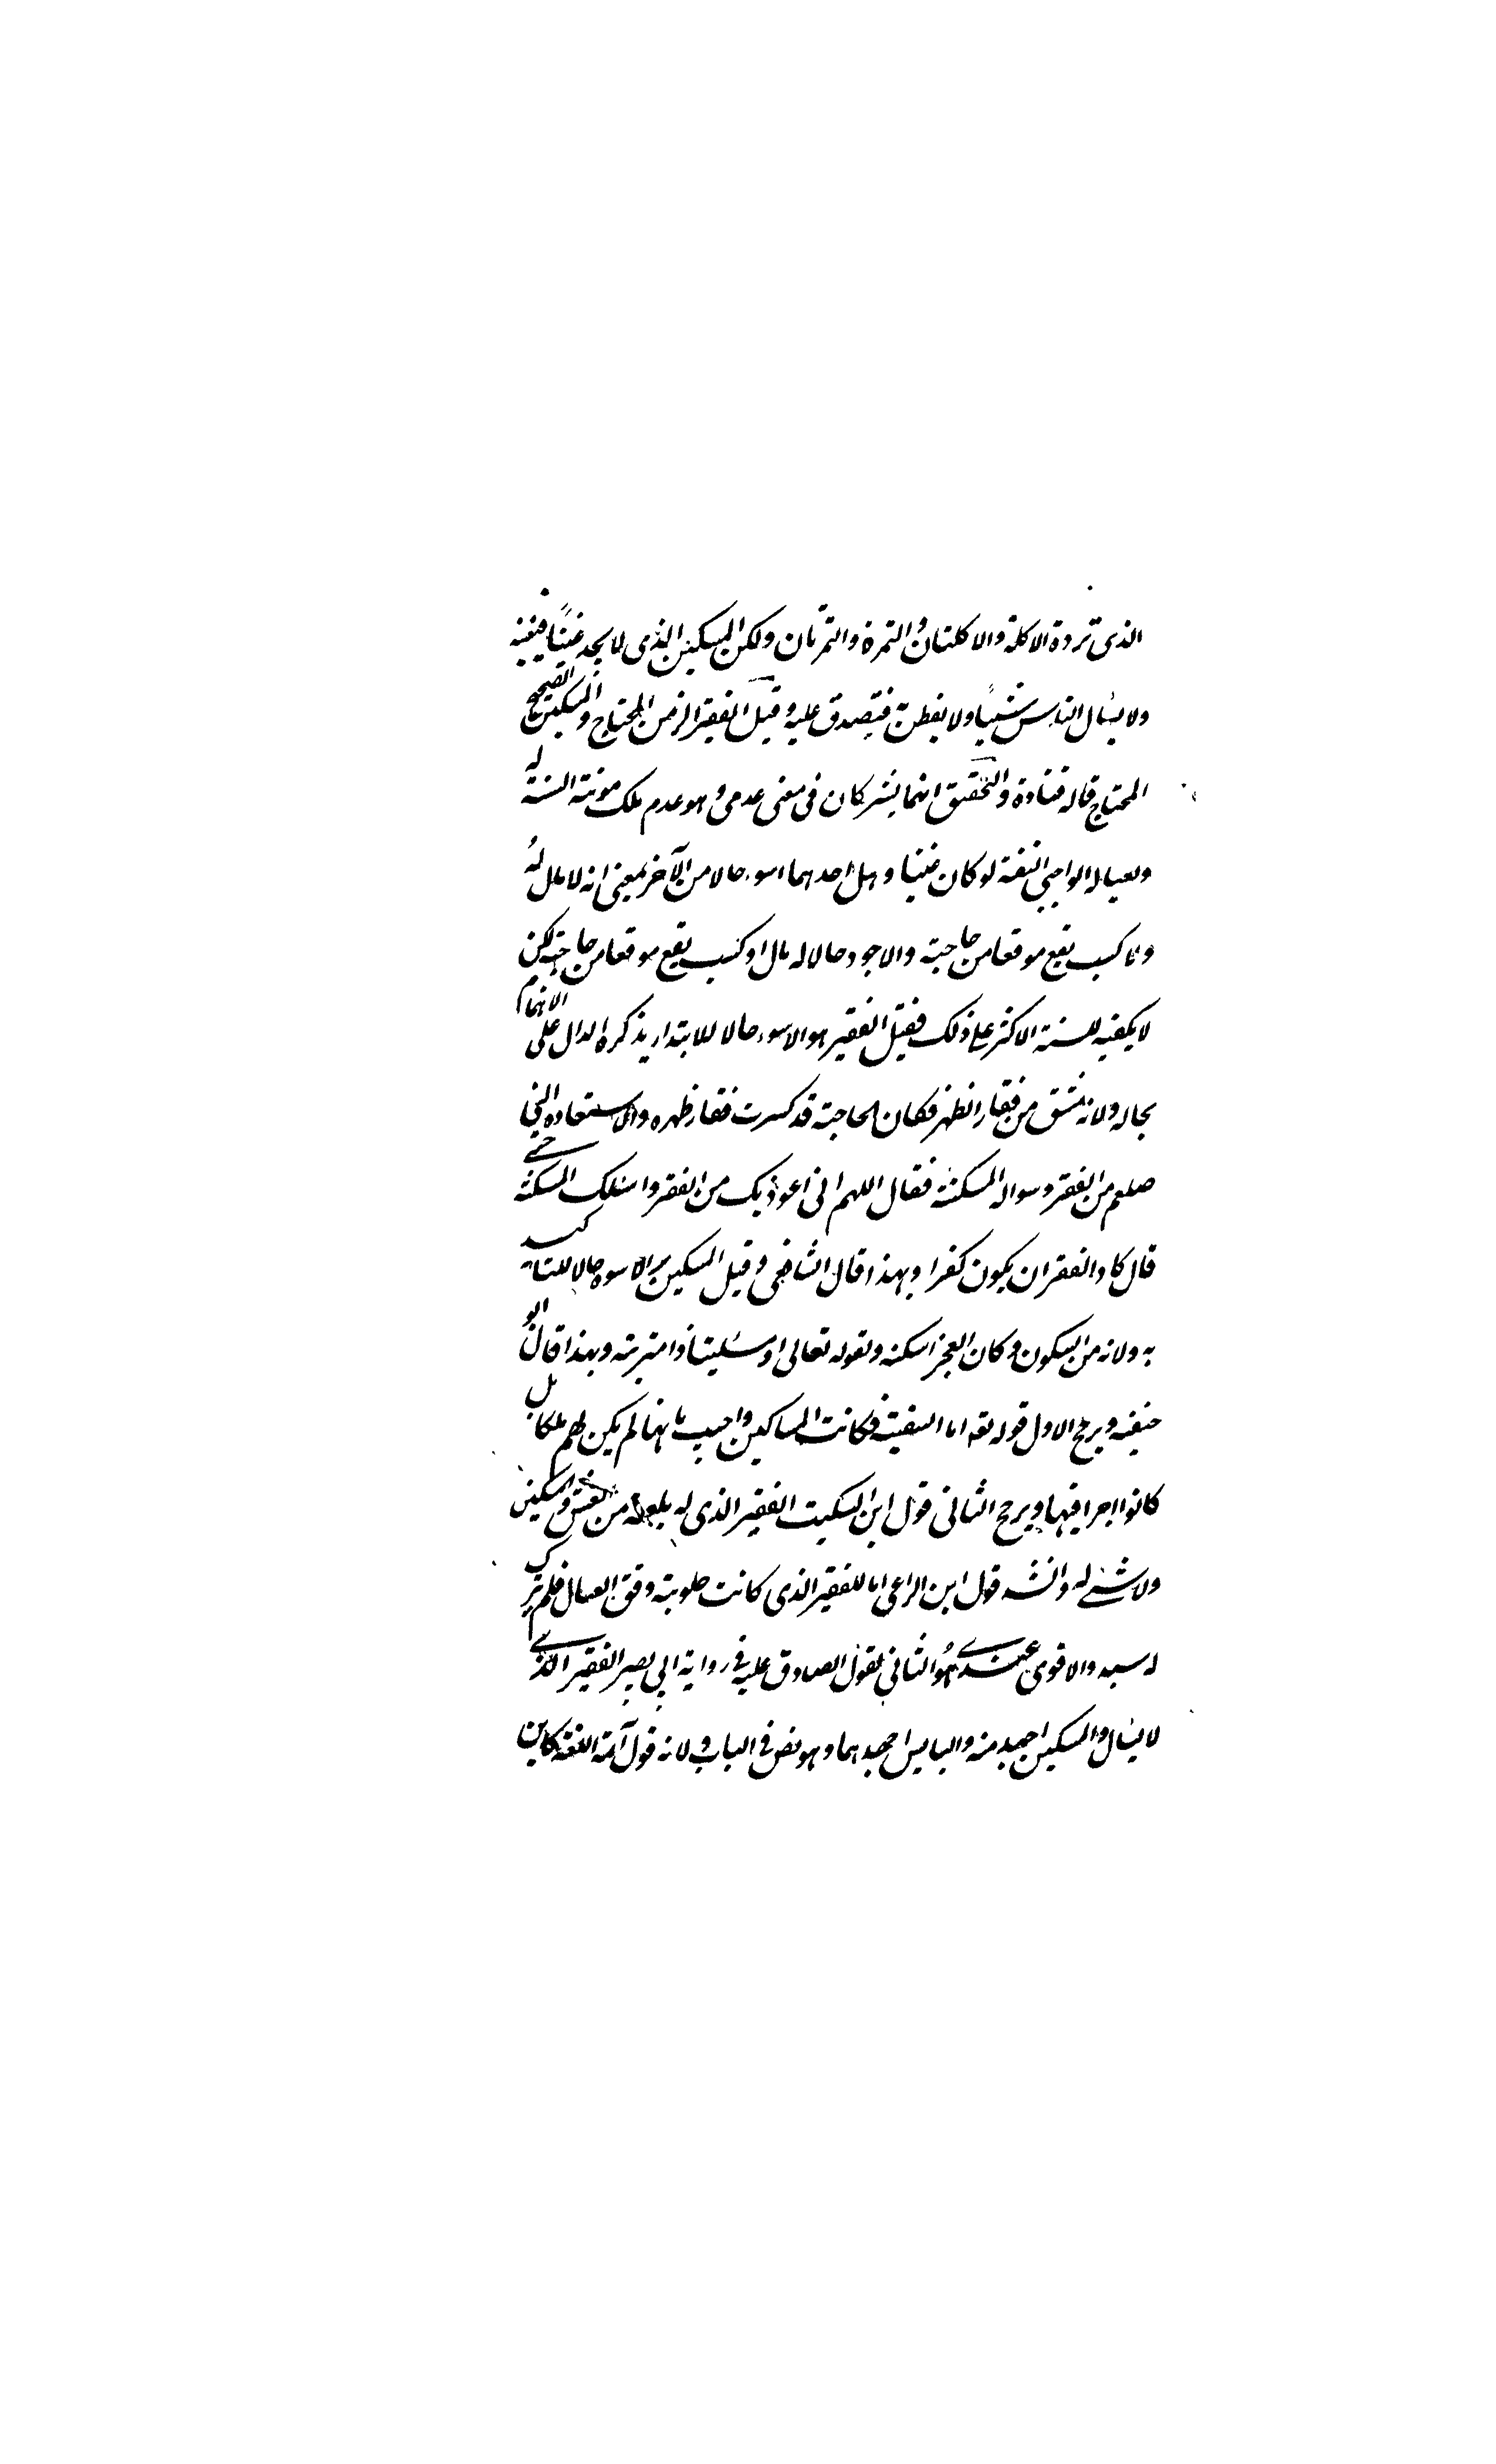 الذى تردة الاكلة والاكلتان والتمرة والتمرتان ولكن المسكين الذى لا يجد غنيًا فيغنيه
ولا يسٔال الناس شيئًا ولا يفطن به فيتصدق عليه وقيل الفقير الزمن المحتاج والمسكين الصحيح
المحتاج قاله قتادة والتحقيق انهما يشتركان فى معنى عدمى وهو عدم ملك مونته السنة له
ولعياله الواجبى النفقة لو كان غنيا وهل احدهما اسوء حالا من الآخر بمعنى انه لا مال له
ولا كسب يقع موقعا من حاجته والاجود حالا له مال او كسب يقع موقعا من حاجته لكن
لا يكفيه للسنة الاكثر على ذلك فقيل الفقير هو الاسوء حالا للابتداء بذكره الدال على الاهتمام
بحاله ولانه مشتق من فقار الظهر فكان الحاجة قد كسرت فقار ظهره والاستعاده النبى
صلعم من الفقر وسواله المسكنة فقال اللهم انى اعوذ بك من الفقر واسٔلك المسكنة حتى
قال كاد الفقر ان يكون كفرا وبهذا قال الشافعى وقيل المسكين هو الاسوء حالا للتاكيد
به ولانه من السكون وكان العجز اسكنه ولقوله تعالى او مسكينا ذا متربة وبهذا قال ابو
حنيفه ويرجح الاول قوله تعه اما السفينة فكانت لمساكين واجيب بانها لم يكن لهم ملكا بل
كانوا اجرا فيها ويرجح الثانى قول ابن السكيت الفقير الذى له بلغة من العيش والمسكين
ولا شئ له وانشد قول ابن الراعى اما الفقير الذى كانت حلوبته وفق العيال فلم يترك
له سبد والاقوى عندى هو الثانى لقول الصادق عليه فى رواية ابى بصير الفقير الذى
لا يسٔال والمسكين اجهد منه والبايس اجهدهما وهو نص فى الباب ولانه قول آئمة اللغة كابن